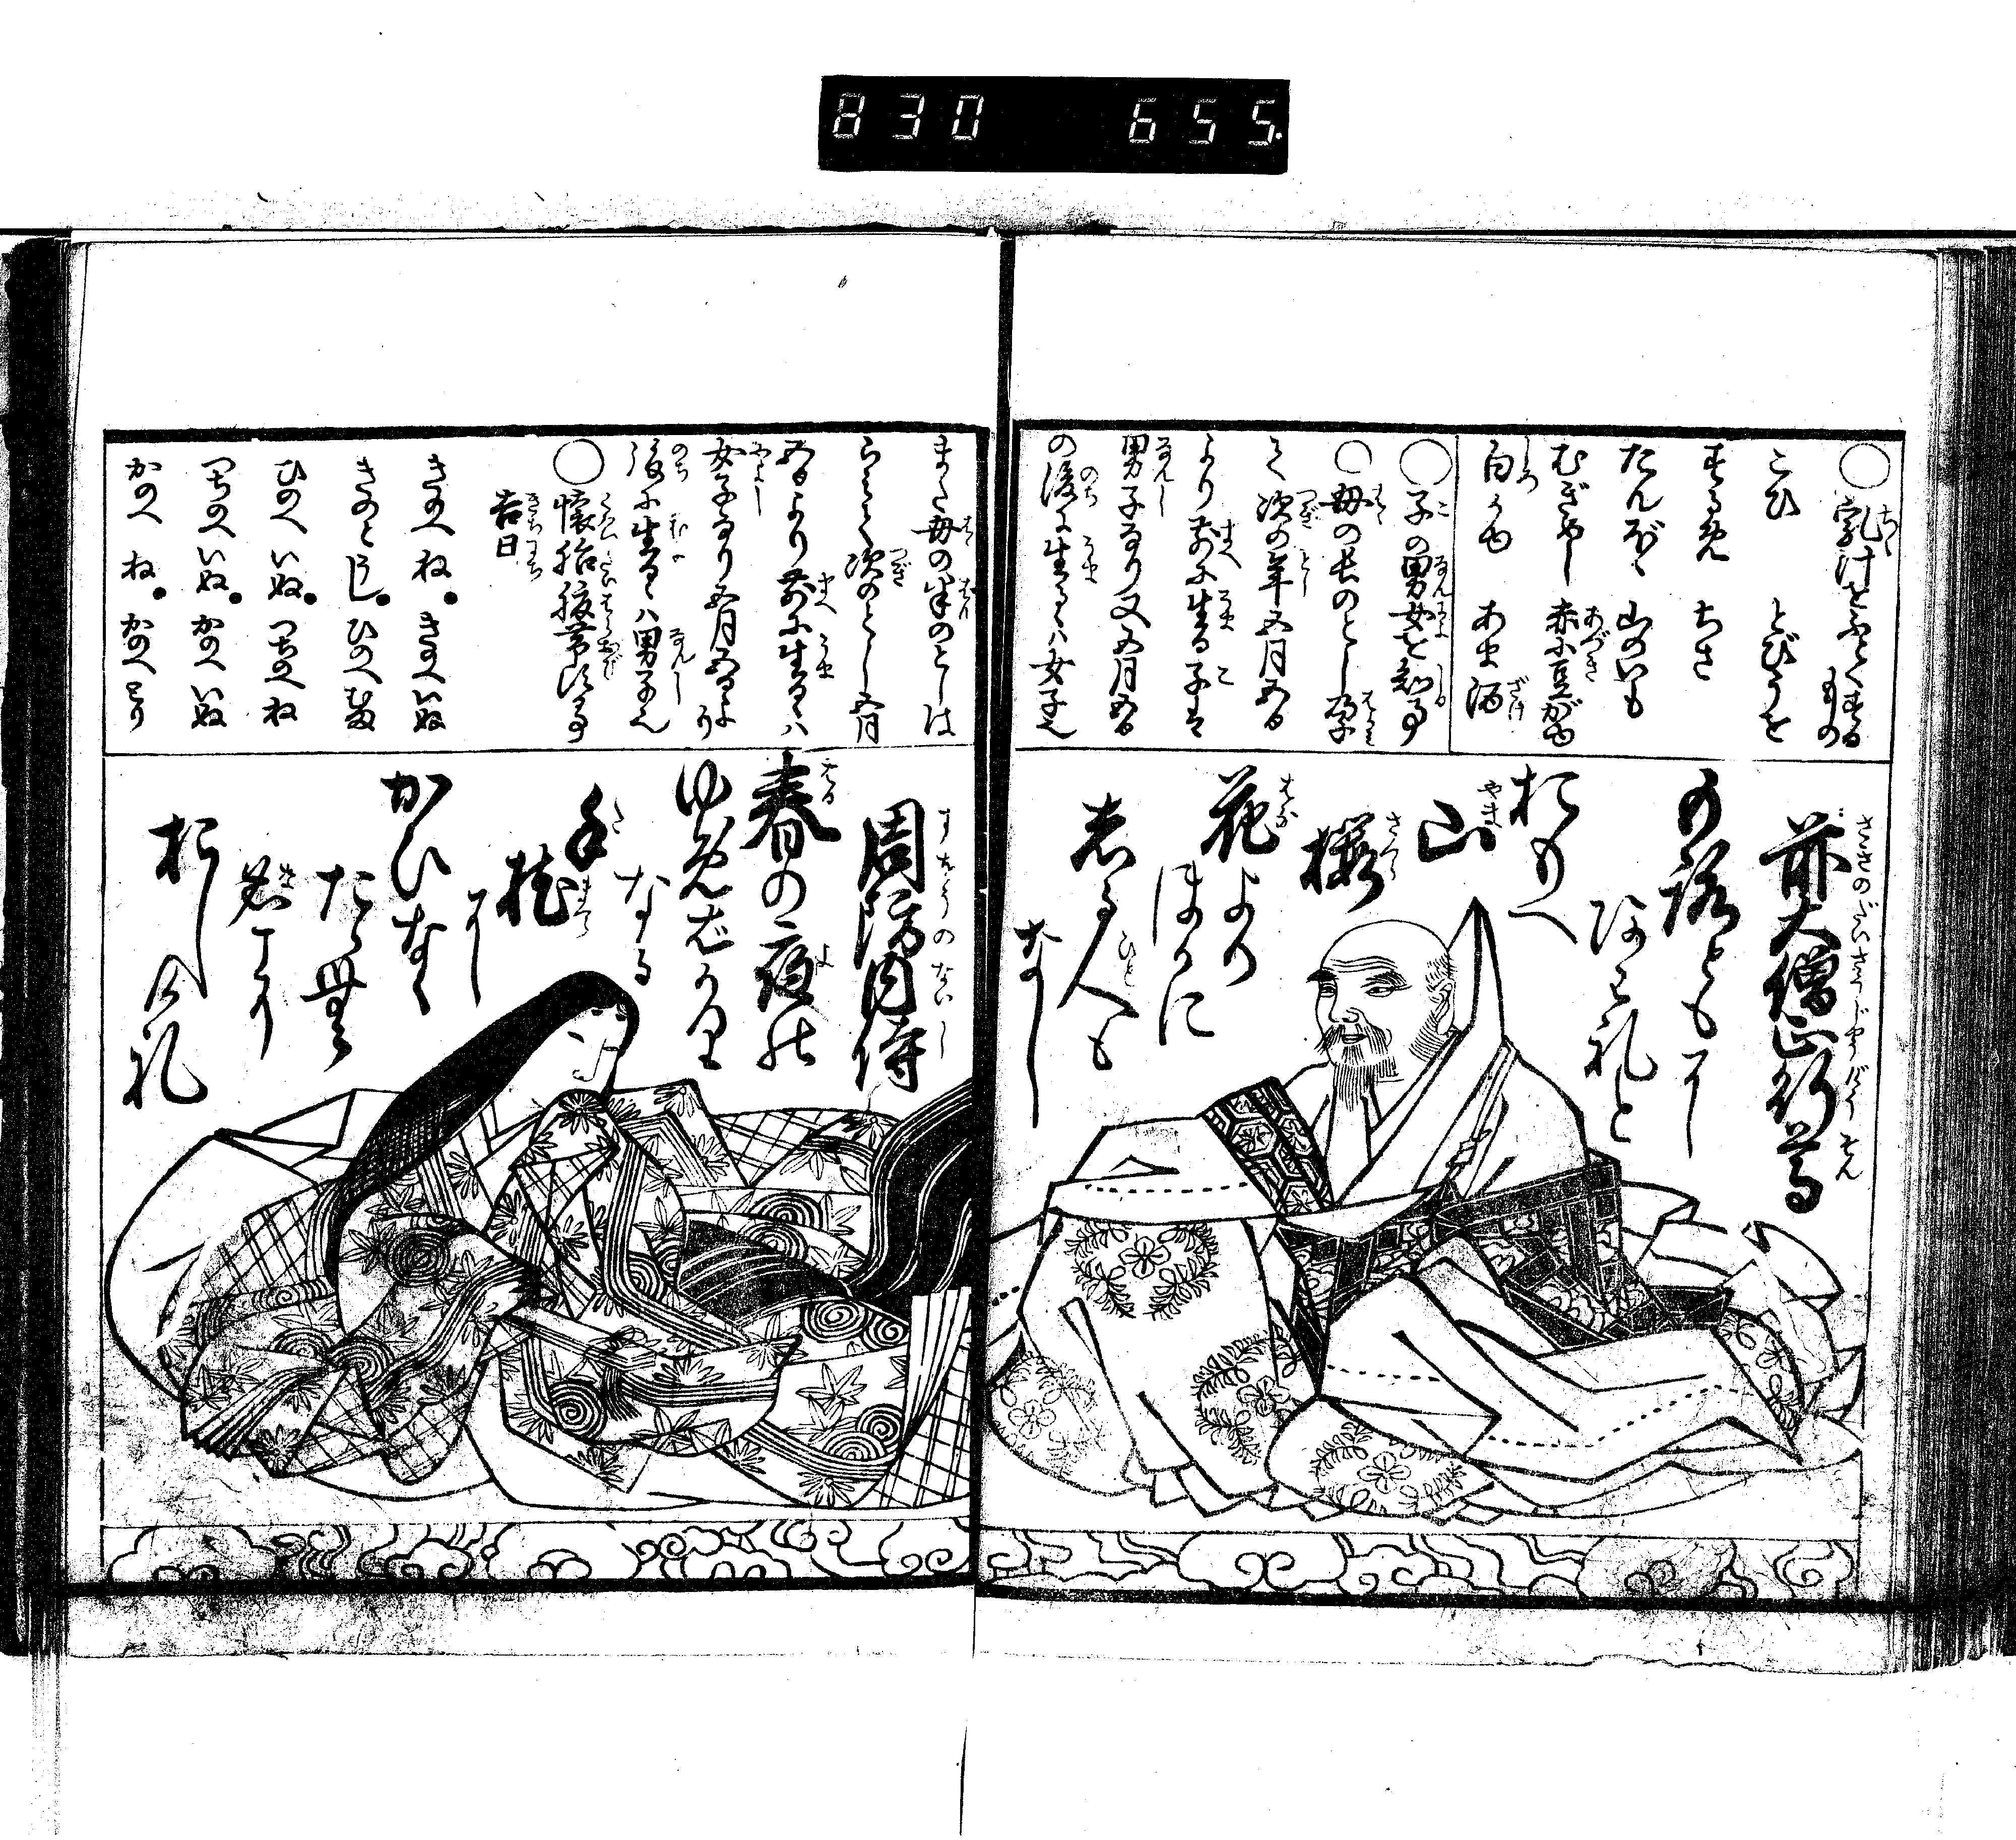 830 655
○乳汁をふとくする
もの
こひ とびうを
するめ ちさ
たんぽゝ 山のいも
むぎめし 赤小豆がゆ
白うり あま酒
○子の男女を知る事
○母の長のとし孕
て次の年五月五日
より前に生る子は
男子なり又五月五日
の後に生るゝハ女子也
前大僧正行尊
もろともに
あはれと
おもへ
山
桜
花より
ほかに
しる人も
なし
また母の半のとしは
らみて次のとし五月
五日より前に生るゝハ
女子なり五月五日より
後に生るゝハ男子也
○懐胎腹帯する
吉日
きのへね●きのへいぬ
きのとうし●ひのへ
ひのへいぬ●つちのへね
つちのへいぬ●かのへいぬ
かのへね●かのへとり
周防内侍
春の夜の
ゆめばかり
なる
手
枕
に
かひなく
たゝむ
名こそ
おし
けれ